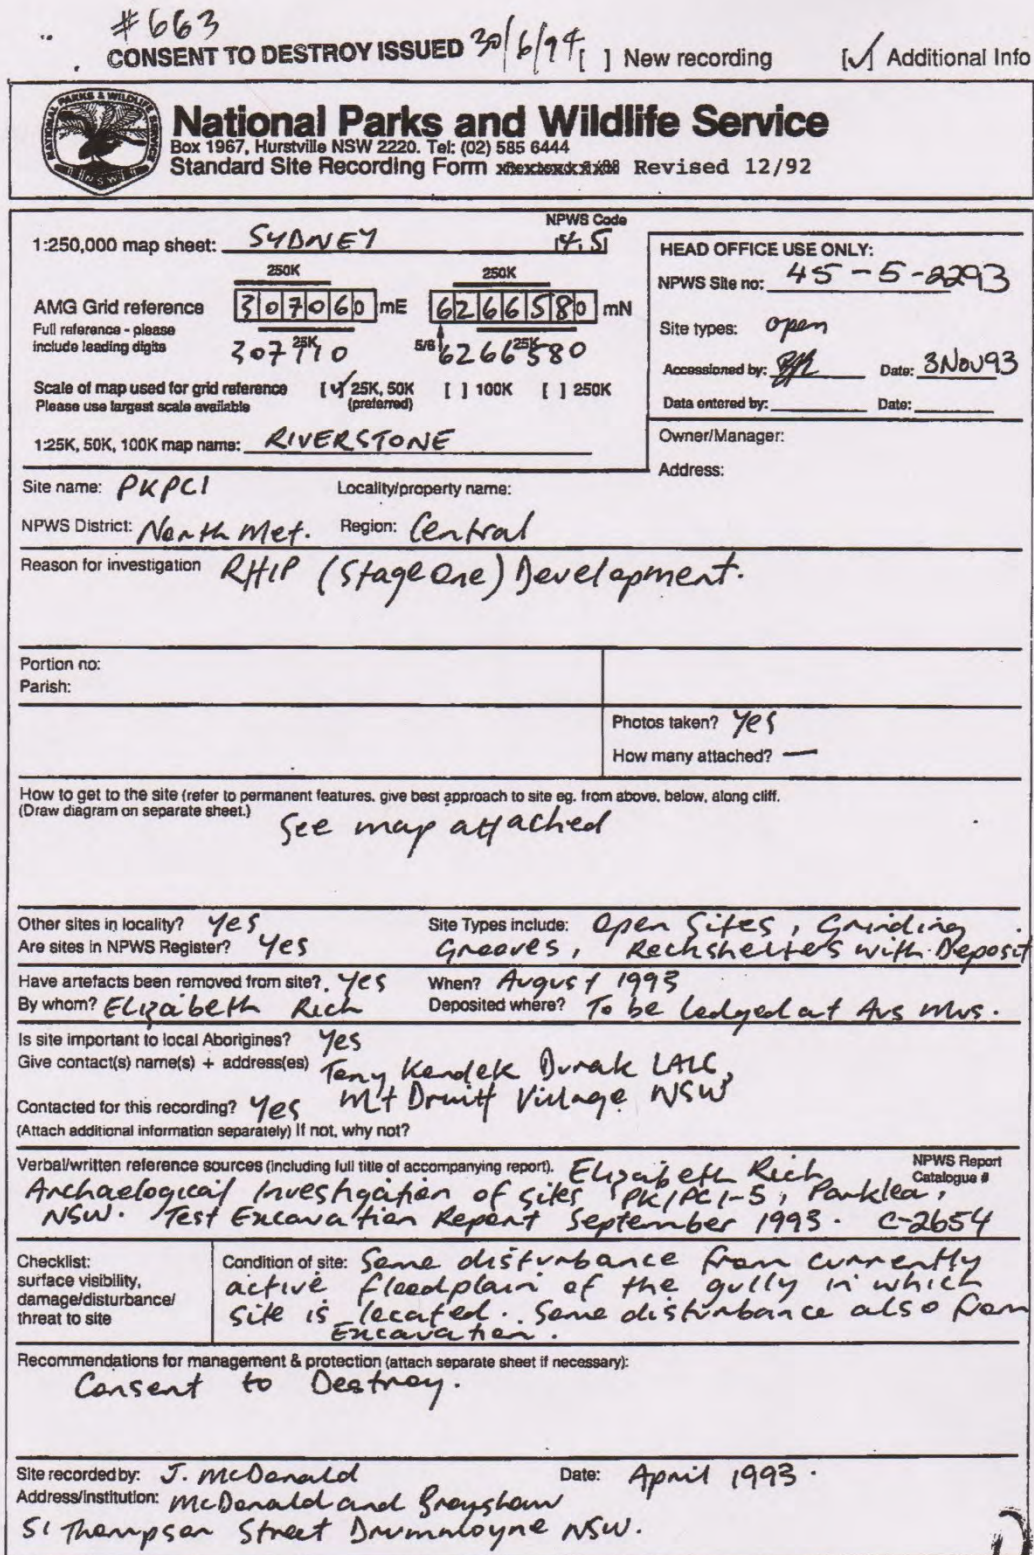 #663
CONSENT TO DESTROY ISSUED 30/6/94 [ ] New recording [✓] Additional Info
NATIONAL PARKS & WILDLIFE SERVICE
N.S.W.
National Parks and Wildlife Service
Box 1967, Hurstville NSW 2220. Tel: (02) 585 6444
Standard Site Recording Form Revised 12/92
1:250,000 map sheet: SYDNEY
NPWS Code
HEAD OFFICE USE ONLY:
NPWS Site no: 45-5-2293
250K 250K
AMG Grid reference 307060 mE 6266580 mN
Full reference - please
include leading digits
25K 5/6 25K
307110 6266580
Site types: open
Accessioned by: Date: 3Nov93
Scale of map used for grid reference [✓] 25K, 50K [ ] 100K [ ] 250K
Please use largest scale available (preferred)
Data entered by: Date:
1:25K, 50K, 100K map name: RIVERSTONE
Owner/Manager:
Address:
Site name: PKPC1 Locality/property name:
NPWS District: North Met. Region: Central
Reason for investigation RHIP (Stage One) Development.
Portion no:
Parish:
Photos taken? Yes
How many attached? —
How to get to the site (refer to permanent features, give best approach to site eg. from above, below, along cliff.
(Draw diagram on separate sheet.)
See map attached
Other sites in locality? Yes Site Types include: Open Sites, Grinding
Are sites in NPWS Register? Yes Grooves, Rockshelters with Deposit
Have artefacts been removed from site? Yes When? August 1993
By whom? Elizabeth Rich Deposited where? To be lodged at Aus Mus.
Is site important to local Aborigines? Yes
Give contact(s) name(s) + address(es) Tony Kondek Durak LALC,
Mt Druitt Village NSW
Contacted for this recording? Yes
(Attach additional information separately) If not, why not?
Verbal/written reference sources (including full title of accompanying report). Elizabeth Rich
NPWS Report
Catalogue #
Archaelogical Investigation of sites PK/PC1-5, Parklea,
NSW. Test Excavation Report September 1993. C-2654
Checklist:
surface visibility,
damage/disturbance/
threat to site
Condition of site: Some disturbance from currently
active floodplain of the gully in which
site is located. Some disturbance also from
Excavation.
Recommendations for management & protection (attach separate sheet if necessary):
Consent to Destroy.
Site recorded by: J. McDonald Date: April 1993.
Address/institution: McDonald and Brayshaw
51 Thompson Street Drummoyne NSW.